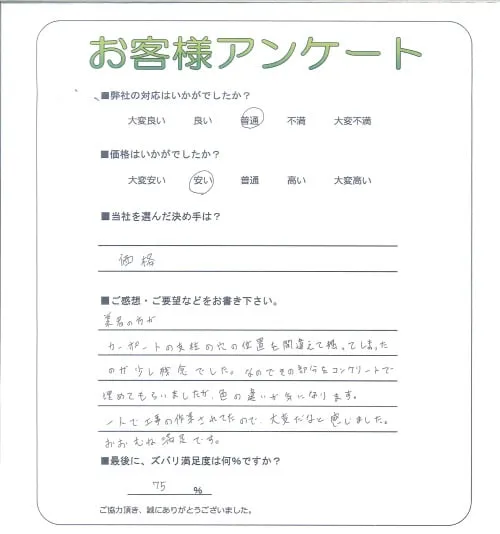 お客様アンケート
■弊社の対応はいかがでしたか？
大変良い 良い 普通 不満 大変不満
■価格はいかがでしたか？
大変安い 安い 普通 高い 大変高い
■当社を選んだ決め手は？
価格
■ご感想・ご要望などをお書き下さい。
業者の方が
カーポートの支柱の穴の位置を間違えて掘ってしまった
のが少し残念でした。なのでその部分をコンクリートで
埋めてもらいましたが、色の違いが気になります。
ートで工事の作業されてたので、大変だなと感じました。
おおむね満足です。
■最後に、ズバリ満足度は何％ですか？
75 ％
ご協力頂き、誠にありがとうございました。